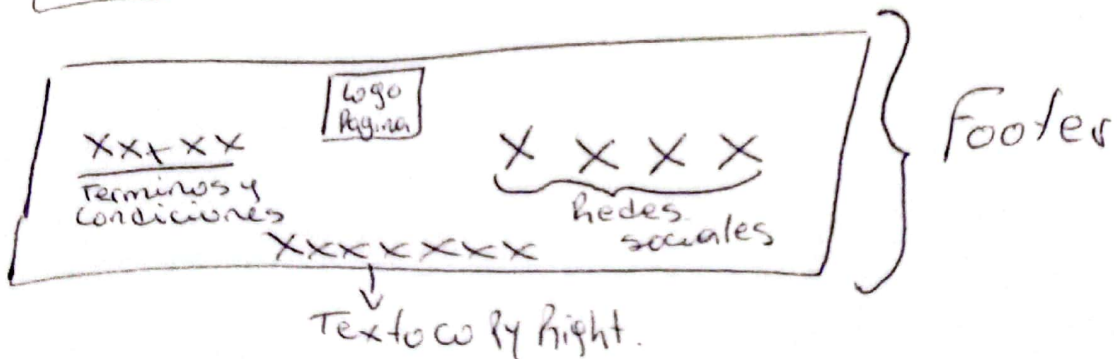 Logo
Pagina
XXXXX
Terminos y
condiciones
X X X X
Redes
sociales
XXXXXXX
Texto copy Right.
Footer